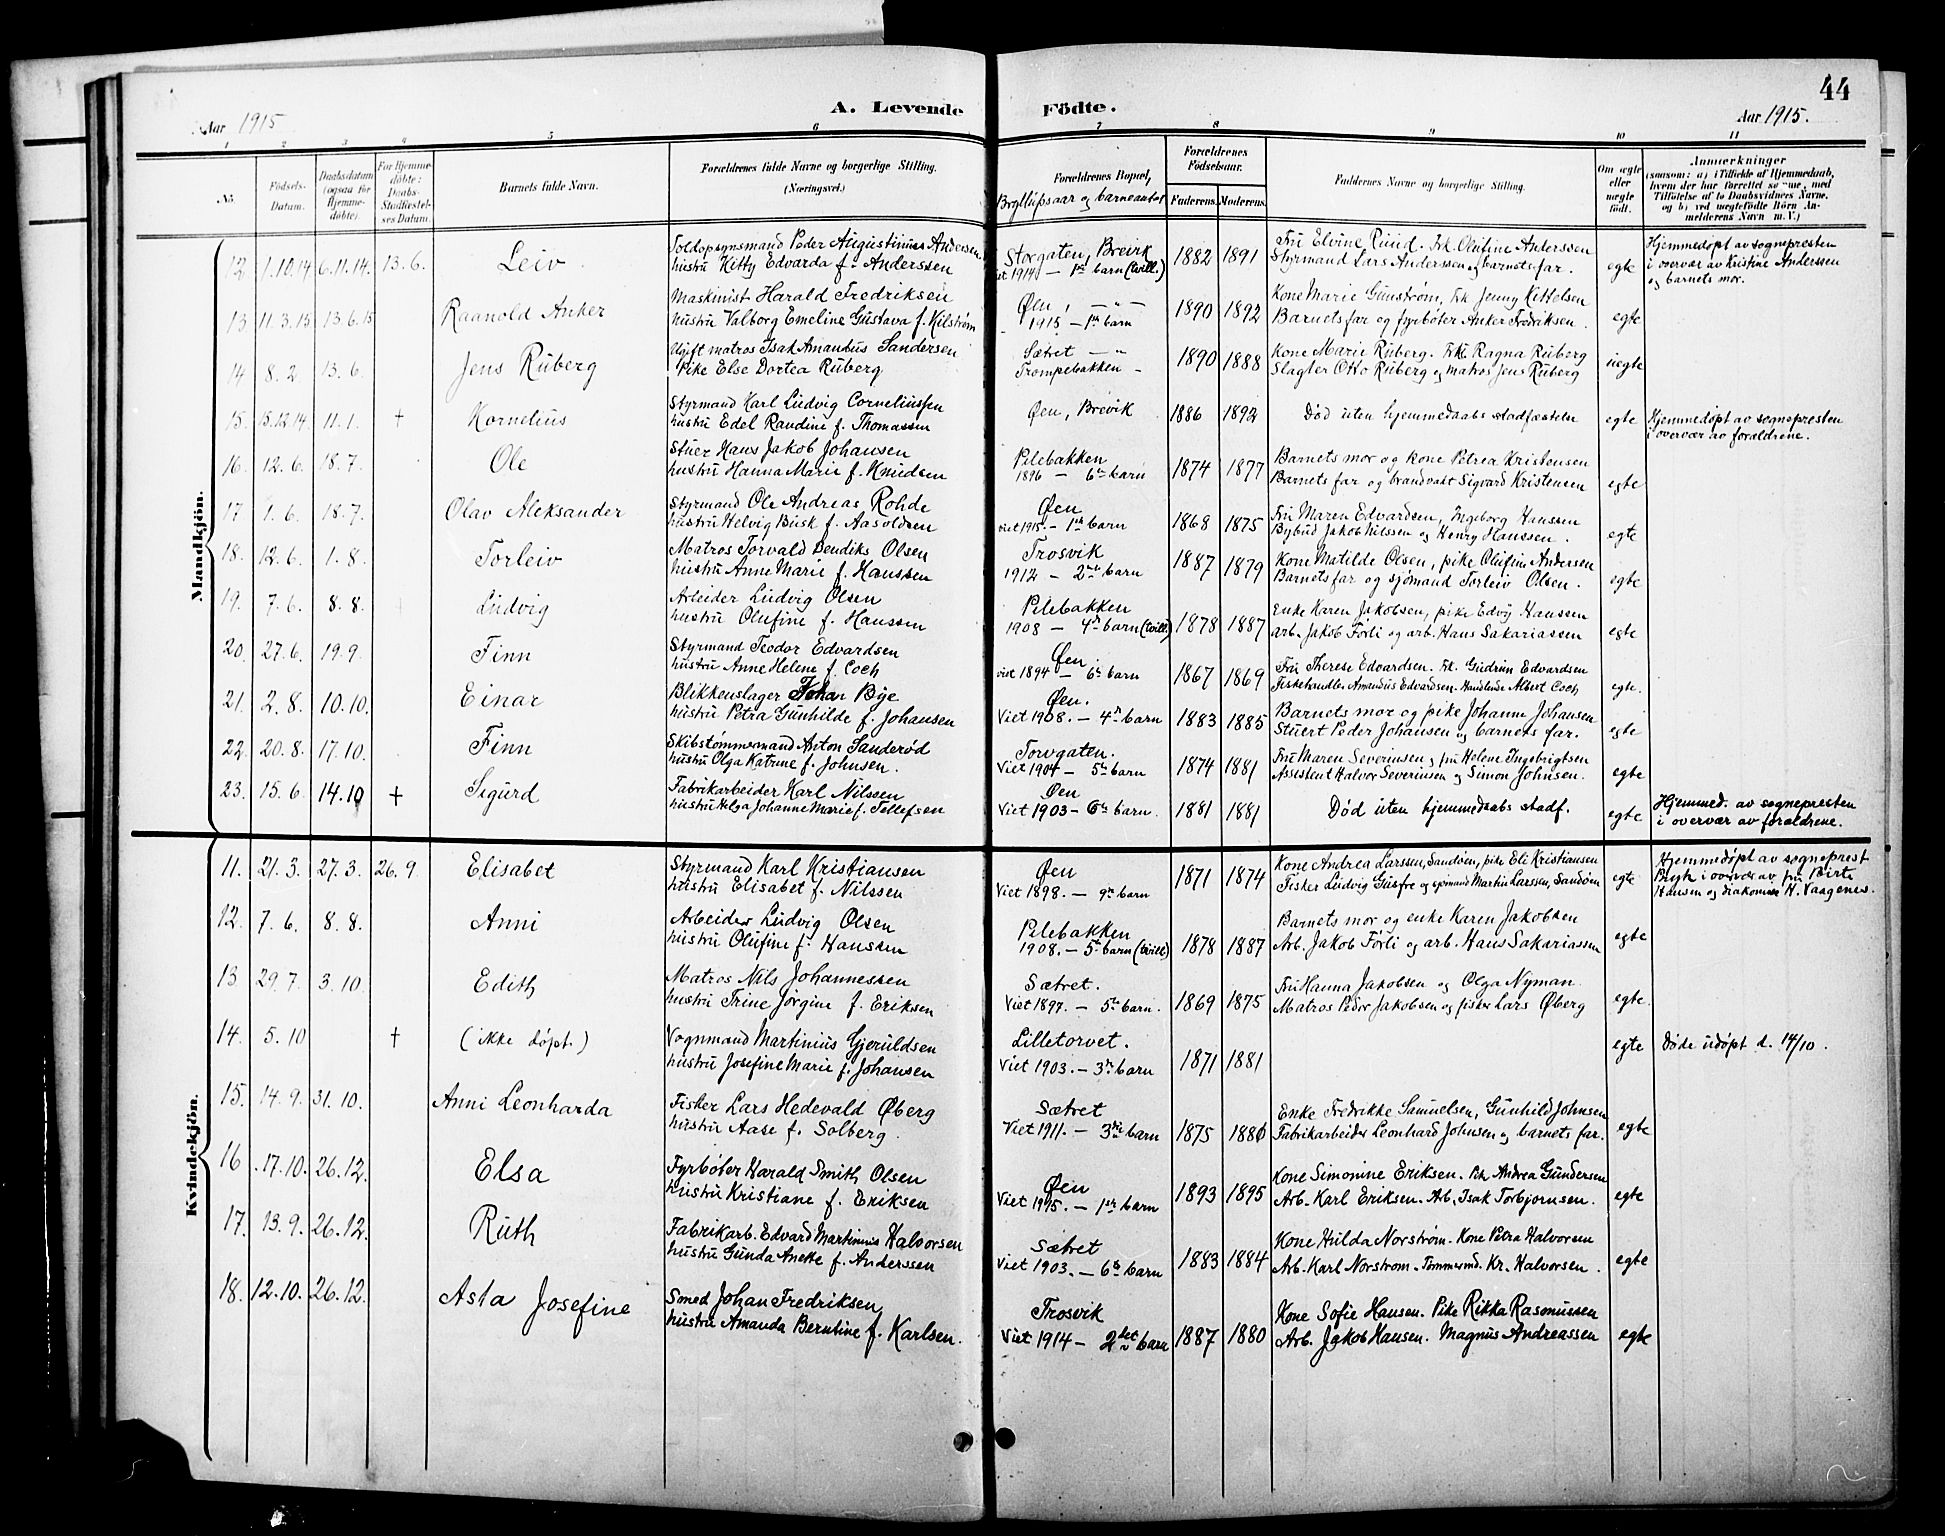 44
Aar 1915
A. Levende Födte.
Aar 1915.
1 2 3 4 5 6 7 8 9 10 11
No.
Födsels-Datum.
Daabsdatum (ogsaa for Hjemmedöbte).
For Hjemmedöbte: Daabs-Stadfæstelses Datum.
Barnets fulde Navn.
Forældrenes fulde Navne og borgerlige Stilling.
(Næringsvei.)
Forældrenes Bopæl,
Bryllupsaar og barneantal
Forældrenes Födselsaar.
Faderens. Moderens.
Faddernes Navne og borgerlige Stilling.
Om ægte eller uægte födt.
Anmærkninger
(saasom: a) i Tilfælde af Hjemmedaab,
hvem der har forrettet samme, med
Tilföielse af to Daabsvidners Navne,
og b) ved uægtefödte Börn Anmelderens Navn m. V.)
Mandkjön.
12. 1.10.14 6.11.14. 13.6. Leiv Toldopsynsmand Peder Augustinius Andersen Storgaten, Brevik 1882 1891 Fru Elvine Ruud. Frk. Olufine Anderssen egte Hjemmedøpt av sognepresten
hustru Kitty Edvarda f. Anderssen 1914 — 1ste barn (tvill.) Styrmand Lars Anderssen og barnets far. i overvær av Kristine Anderssen
og barnets mor.
13 11.3.15 13.6.15 Raanold Anker Maskinist Harald Fredriksen Øen, — " — 1890 1892 Kone Marie Gunstrøm, Frk. Jenny Kittelsen egte
hustru Valborg Emeline Gustava f. Kilstrøm 1915 — 1ste barn Barnets far og fyrbøter Anker Fredriksen.
14 8.2. 13.6. Jens Ruberg Ugift matros Isak Amandus Sandersen Sætret — " 1890 1888 Kone Marie Ruberg. Frk. Ragna Ruberg uegte
Pike Else Dortea Ruberg Trompebakken - Slagter Otto Ruberg og matros Jens Ruberg
15. 15.12.14. 11.1. + Kornelius Styrmand Karl Ludvig Corneliussen Øen, Brevik 1886 1892 Død uten hjemmedaabs stadfæstelse egte Hjemmedøpt av sognepresten
hustru Edel Randine f. Thomassen i overvær av forældrene.
16. 12.6. 18.7. Ole Stuer Hans Jakob Johansen Pilebakken 1874 1877 Barnets mor og kone Petrea Kristensen egte
hustru Hanna Marie f. Knudsen 1896 — 6te barn Barnets far og brandvakt Sigvard Kristensen
17 1.6. 18.7. Olav Aleksander Styrmand Ole Andreas Rohde Øen 1868 1875 Fru Maren Edvardsen, Ingeborg Hanssen egte
hustru Helvig Busk f. Aasoldsen viet 1915. — 1ste barn Bybud Jakob Nilssen og Henry Hanssen.
18. 12.6. 1.8. Torleiv Matros Torvald Bendiks Olsen Trosvik 1887 1879 Kone Matilde Olsen, pike Olufine Andersen egte
hustru Anne Marie f. Hanssen 1912 — 2net barn Barnets far og sjømand Torleiv Olsen.
19. 7.6. 8.8. Ludvig Arbeider Ludvig Olsen Pilebakken 1878 1887 Enke Karen Jakobsen, pike Edvij Hanssen egte
hustru Olufine f. Hanssen 1908 — 4de barn (tvill.) arb. Jakob Førli og arb. Hans Sakariassen
20. 27.6. 19.9. Finn Styrmand Teodor Edvardsen Øen. 1867 1869 Fru Therese Edvardsen. Frk. Gudrun Edvardsen egte.
hustru Anne Helene f. Coch viet 1894 — 6te barn Fiskehandler Amandus Edvardsen. Handlende Albert Coch
21. 2.8. 10.10. Einar Blikkenslager Johan Bye Øen. 1883 1885 Barnets mor og pike Johanne Johansen egte
hustru Petra Gunhilde f. Johansen Viet 1908. — 4de barn Stuert Peder Johansen og barnets far.
22. 20.8. 17.10. Finn Skibstømmermand Anton Sanderød Torvgaten. 1874 1881 Fru Maren Severinsen, fru Helene Ingebrigtsen egte
hustru Olga Katrine f. Johnsen. Viet 1904 — 5te barn Assistent Halvor Severinsen og Simon Johnsen.
23. 15.6 14.10 + Sigurd Fabrikarbeider Karl Nilssen Øen 1881 1881 Død uten hjemmedaabs stadf. egte Hjemmed. av sognepresten
hustru Helga Johanne Marie f. Tellefsen Viet 1903 — 6te barn. i overvær av forældrene.
Kvindekjön.
11. 21.3. 27.3. 26.9. Elisabet Styrmand Karl Kristiansen Øen 1871 1874 Kone Andrea Larssen, Sandøen, pike Eli Kristiansen egte Hjemmedøpt av sogneprest
hustru Elisabet f. Nilssen Viet 1898. — 9de barn Fisker Ludvig Gusfre og sjømand Martin Larssen, Sandøen i overvær av fru Birte
Hansen og diakonisse H. Vaagenes.
12. 7.6. 8.8. Anni Arbeider Ludvig Olsen Pilebakken 1878 1887 Barnets mor og enke Karen Jakobsen egte
hustru Olufine f. Hanssen 1908. — 5te barn (tvill.) Arb. Jakob Førli og arb. Hans Sakariassen
13 29.7. 3.10. Edith Matros Nils Johannessen Sætret. 1869 1875 Fru Hanna Jakobsen og Olga Nyman egte.
hustru Trine Jørgine f. Eriksen Viet 1897. — 5te barn. Matros Peder Jakobsen og fisker Lars Øberg
14. 5.10 + (ikke døpt.) Vognmand Martinius Gjeruldsen Lilletorvet. 1871 1881 egte Døde udøpt d. 14/10.
hustru Josefine Marie f. Johansen Viet 1903. — 3die barn
15. 14.9. 31.10. Anni Leonharda Fisker Lars Hedevald Øberg Sætret 1875 1880 Enke Fredrikke Samuelsen, Gunhild Johnsen egte
hustru Aase f. Solberg. Viet 1911. — 3die barn Fabrikarbeider Leonhard Johnsen og barnets far.
16 17.10. 26.12. Elsa Fyrbøter Harald Smith Olsen Øen 1893 1895 Kone Simonine Eriksen. Pik. Andrea Gundersen egte
hustru Kristiane f. Eriksen Viet 1915. — 1ste barn Arb. Karl Eriksen. Arb. Isak Torbjørnsen.
17. 13.9. 26.12. Ruth Fabrikarb. Edvard Martinius Halvorsen Sætret 1883 1884 Kone Hulda Norstrøm. Kone Petra Halvorsen egte
hustru Gunda Anette f. Anderssen Viet 1903. — 6te barn Arb. Karl Norstrøm. Tømmermd. Kr. Halvorsen.
18. 12.10. 26.12. Asta Josefine Smed Johan Fredriksen Trosvik 1887 1880 Kone Sofie Hansen. Pike Rikka Rasmussen egte
hustru Amanda Berntine f. Karlsen. Viet 1914 — 2det barn Arb. Jakob Hansen. Magnus Andreassen